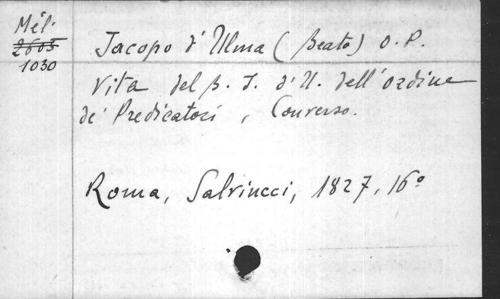 Mél.
2605
1030
Jacopo d'Ulma (Beato) O.P.
Vita del B. J. d'U. dell'ordine
de' Predicatori, Converso.
Roma, Salviucci, 1827, 16°